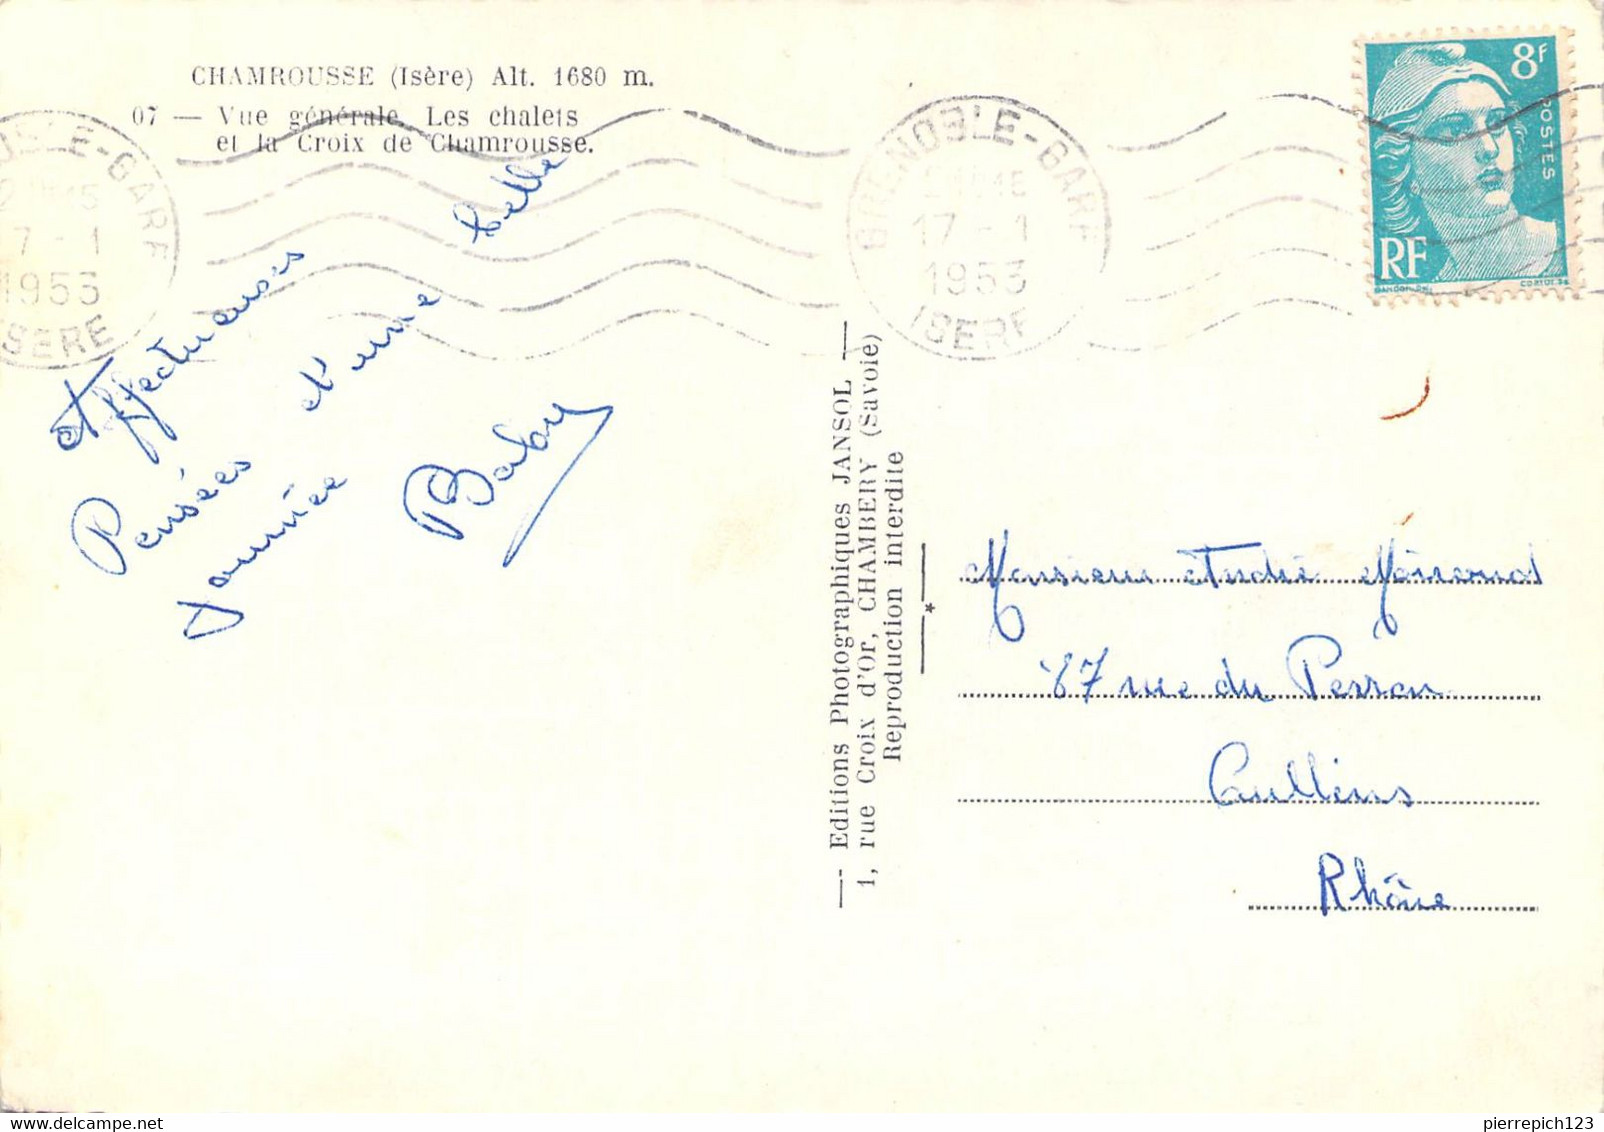 CHAMROUSSE (Isère) Alt. 1680 m.
07 — Vue générale. Les chalets
et la Croix de Chamrousse.
GRENOBLE-GARE
17-1
1953
ISERE
8F
POSTES
RF
Affectueuses
Pensées d'une belle
journée
Baby
— Editions Photographiques JANSOL —
1, rue Croix d'Or, CHAMBERY (Savoie)
Reproduction interdite
Monsieur André
87 rue du Perron
Oullins
Rhône
www.delcampe.net
pierrepich123